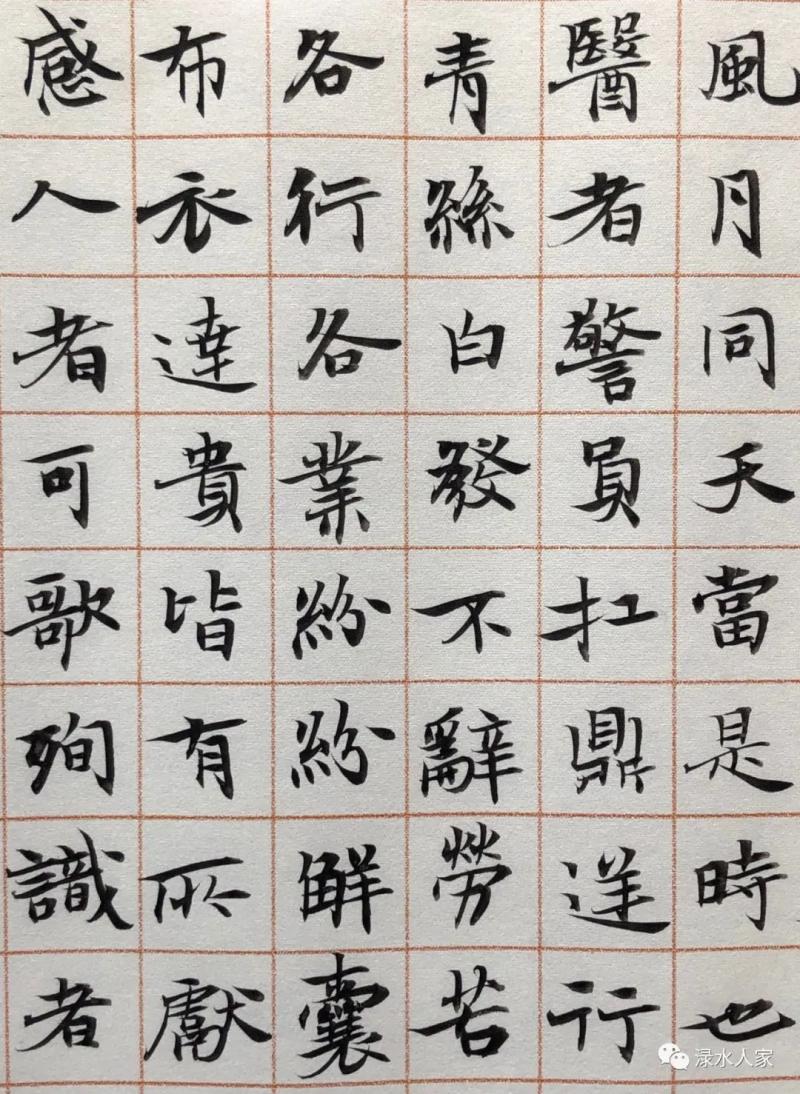 風月同天當是時也
醫者警員扛鼎逆行
青絲白發不辭勞苦
各行各業紛紛解囊
布衣達貴皆有所獻
感人者可歌殉識者
渌水人家